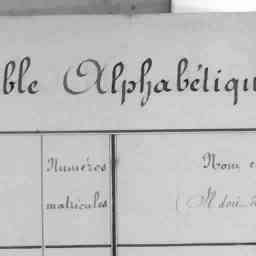 ble Alphabétiqu
Numéros
matricules
Nom e
(Il doit